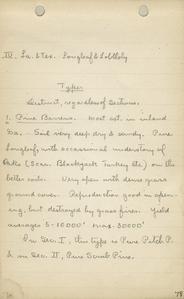 IV. La. & Tex. Longleaf & Loblolly
Types
District, regardless of Sections.
1. Pine Barrens. Most ext. in inland
Ga. - Soil very deep, dry & sandy. Pure
Longleaf, with occasional understory of
Oaks (Scar. Blackjack Turkey etc) on the
better soils. Very open with dense grass
ground cover. Reproduction good in open-
ing, but destroyed by grass fires. Yield
averages 5-10000' max. 30000'
In Sec. I, this type is Pure Pitch P.
& in Sec. II, Pure Scrub Pine.
78